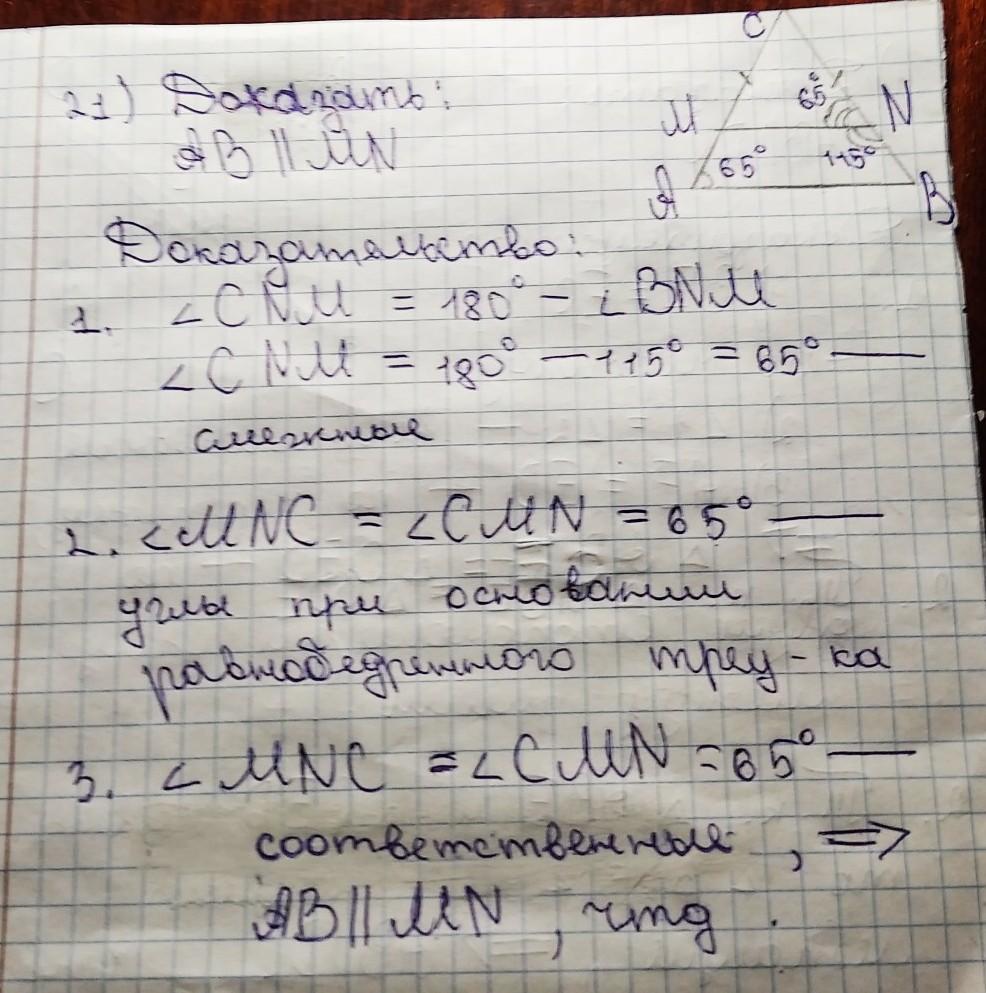 21) Доказать:
AB || MN
C
M
65°
N
A
65°
115°
B
Доказательство:
1. ∠CNM = 180° – ∠BNM
∠CNM = 180° – 115° = 65° —
смежные
2. ∠MNC = ∠CMN = 65° —
углы при основании
равнобедренного треу-ка
3. ∠MNC = ∠CMN = 65° —
соответственные, ⇒
AB || MN, чтд.